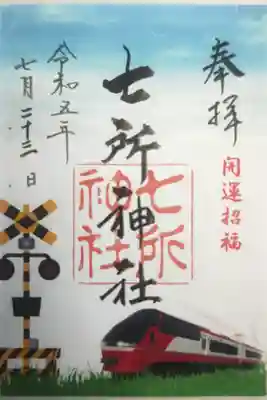 奉拝
開運招福
七所神社
七所神社
令和五年
七月二十三日